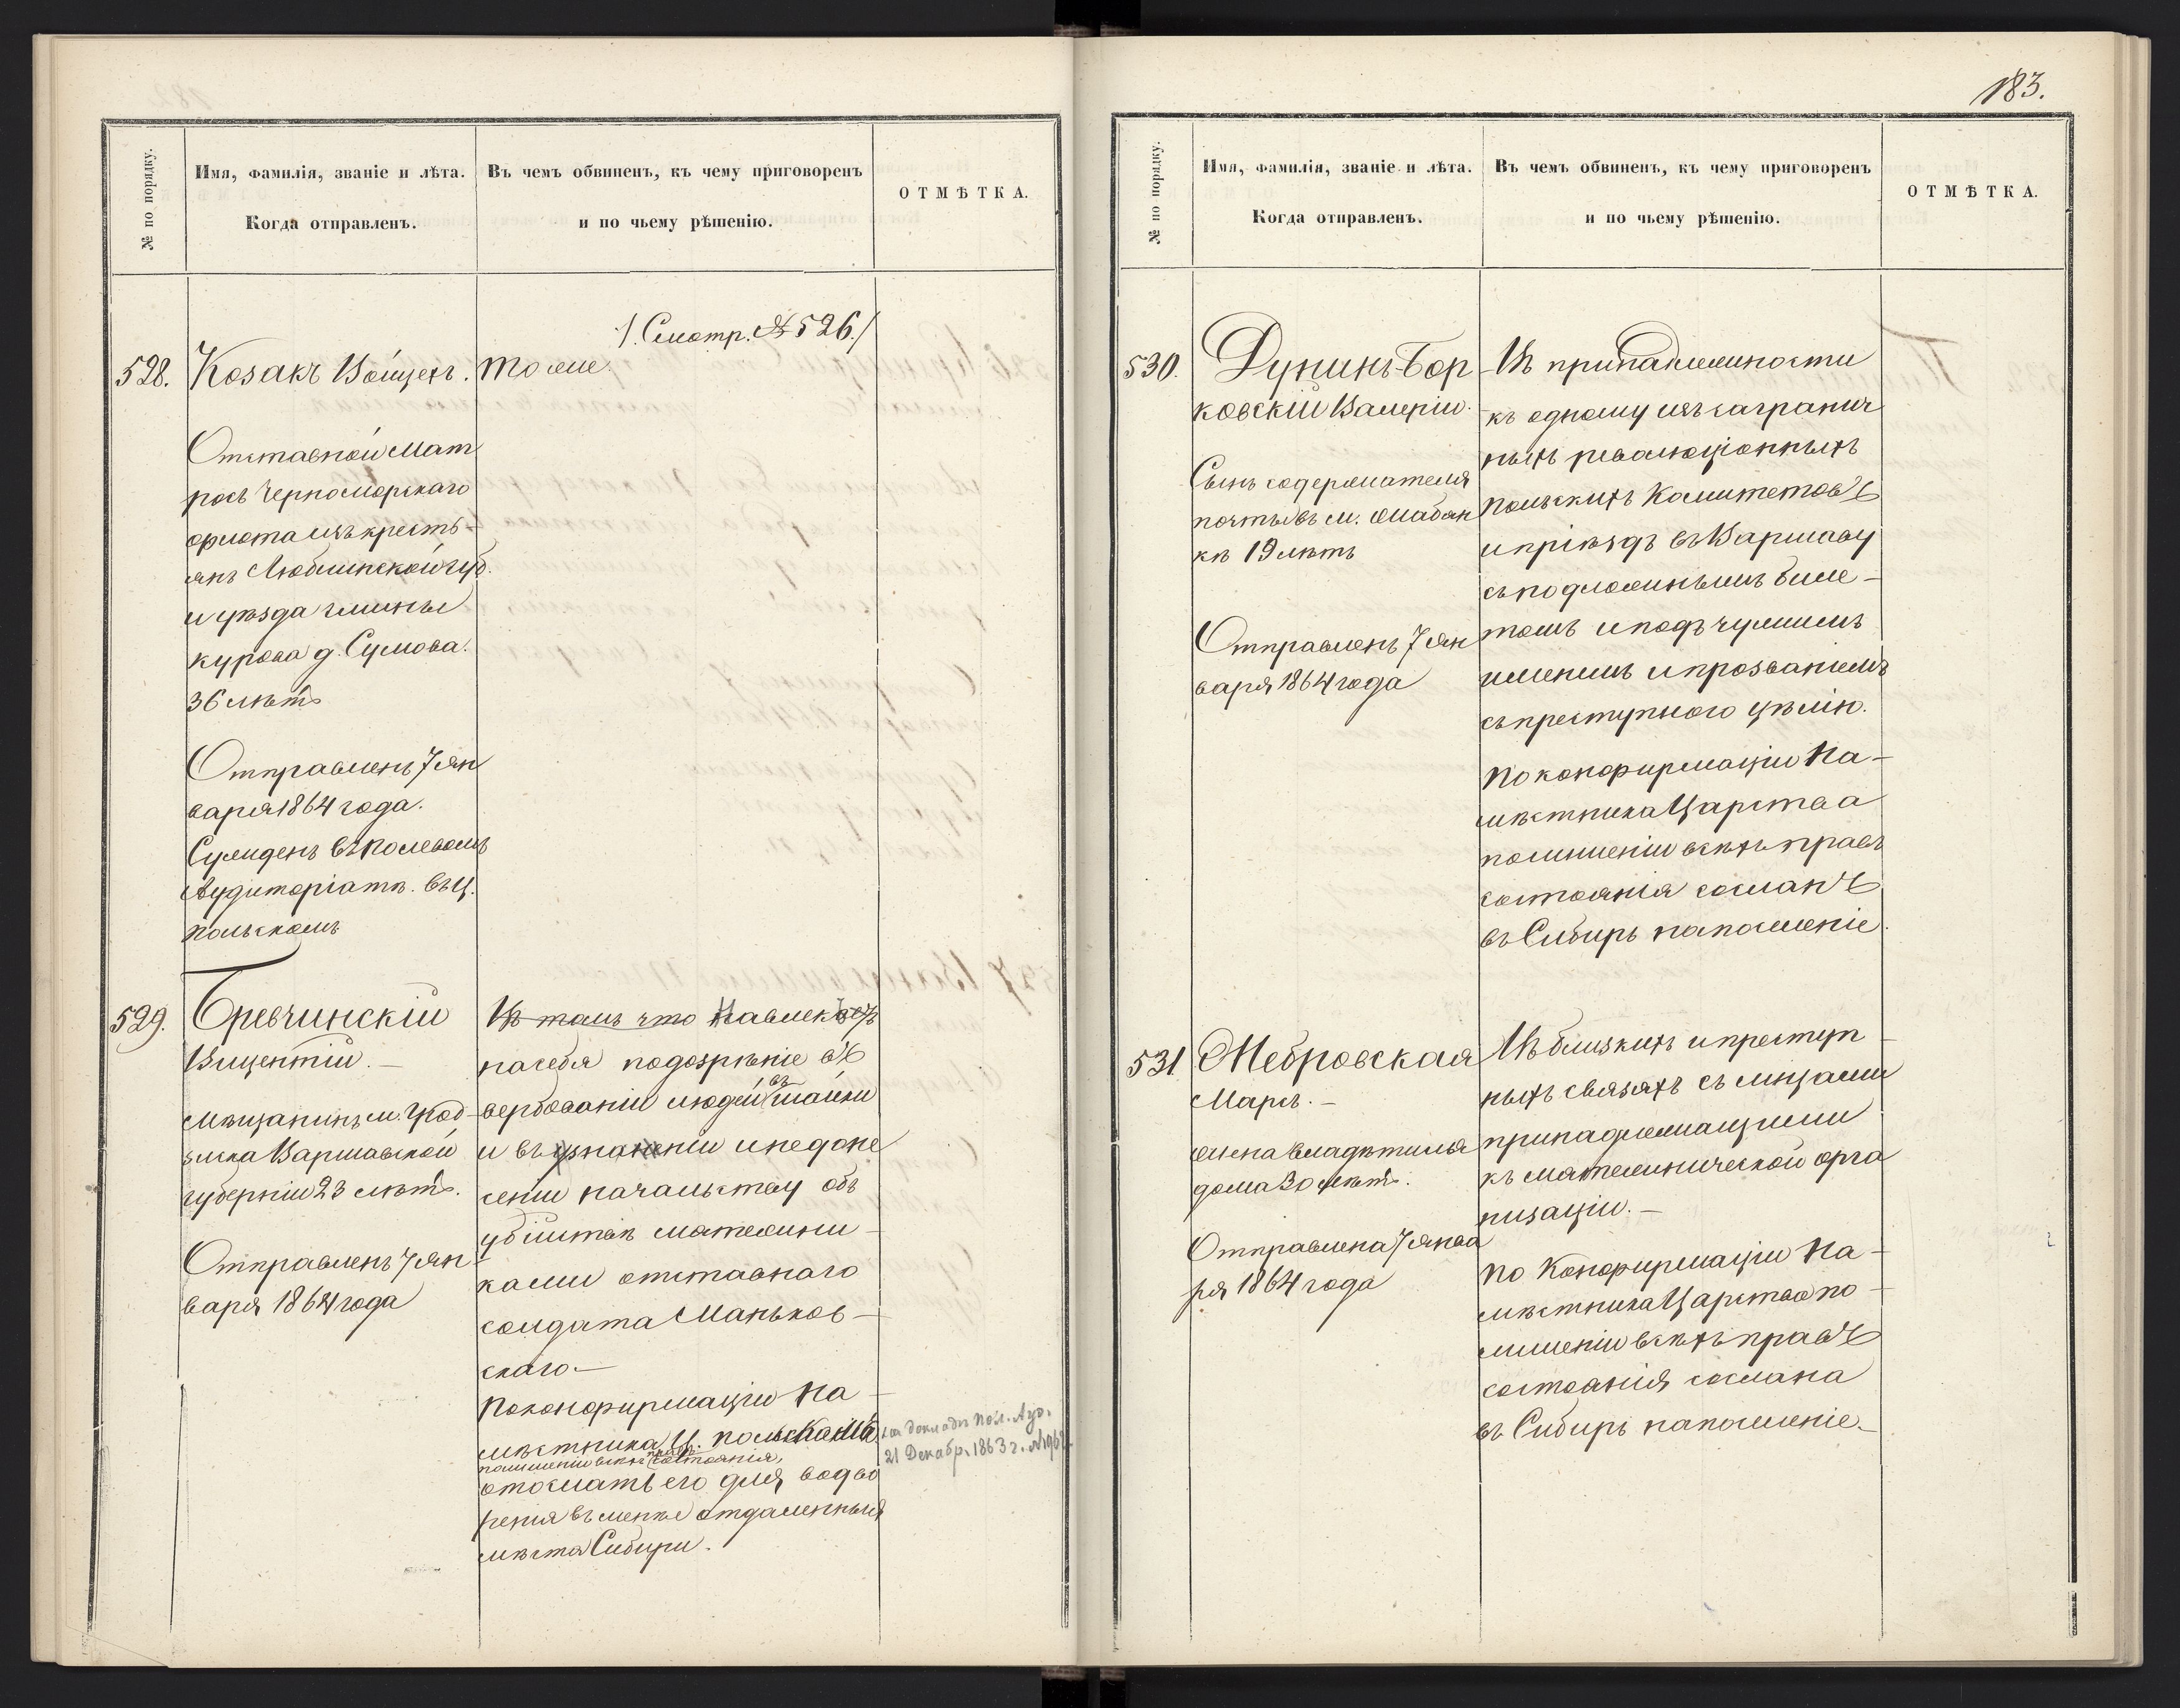 № по порядку.
Имя, фамилія, званіе и лѣта.
Когда отправленъ.
Въ чемъ обвиненъ, къ чему приговоренъ
и по чьему рѣшенію.
ОТМѢТКА.
/. Смотр. № 526./
528. Козакъ Войцехъ. тоже.
Отставной мат
росъ Черноморскаго
флота изъ кресть-
янъ Люблинской губ.
и уѣзда гмины
курова д. Сумова.
36 лѣтъ
Отправленъ 7 ян
варя 1864 года.
Сужденъ въ полевомъ
Аудиторіатѣ. въ Ц.
польскомъ
529. Бревчинскій
Вицентій. —
мѣщанинъ м. Грод-
зиска Варшавской
губерніи 23 лѣтъ.
Отправленъ 7 ян-
варя 1864 года
Въ томъ что навлекъ
на себя подозрѣніе въ
вербованіи людей въ шайки
и въ знаніи и недоне
сеніи начальству объ
убійствѣ мятежни-
ками отставнаго
солдата Маньков-
скаго —
по конфирмаціи На-
мѣстника Ц. польскаго
по лишеніи всѣхъ правъ состоянія,
отослать его для водво
ренія въ менѣе отдаленныя
мѣста Сибири.
на докладѣ Пол. Ауд.
21 Декабр. 1863 г.
183.
№ по порядку.
Имя, фамилія, званіе и лѣта.
Когда отправленъ.
Въ чемъ обвиненъ, къ чему приговоренъ
и по чьему рѣшенію.
ОТМѢТКА.
530. Дунинъ-Бор
ковскій Валерій.
Сынъ содержателя
почты въ м. Жабин
кѣ 19 лѣтъ
Отправленъ 7 ян
варя 1864 года
Въ принадлежности
къ одному изъ загранич
ныхъ революціонныхъ
польскихъ Комитетовъ
и пріѣздъ въ Варшаву
съ подложнымъ биле-
томъ и подъ чужимъ
именемъ и прозваніемъ
съ преступного цѣлію.
по конфирмаціи На-
мѣстника Царства
по лишеніи всѣхъ правъ
состоянія сосланъ
въ Сибирь на поселеніе.
531. Жебровская
Марія. —
жена владѣтеля
дома 30 лѣтъ.
Отправлена 7 янва
ря 1864 года
Въ близкихъ и преступ-
ныхъ связяхъ съ лицами
принадлежащими
къ мятежнической орга
низаціи. —
по Конфирмаціи На-
мѣстника Царства по
лишеніи всѣхъ правъ
состоянія сослана
въ Сибирь на поселеніе.